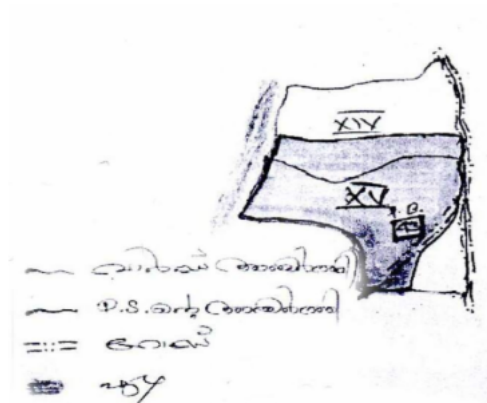 XIV
XV
വാർഡ് അതിർത്തി
P.S. ന്റെ അതിർത്തി
റോഡ്
പുഴ